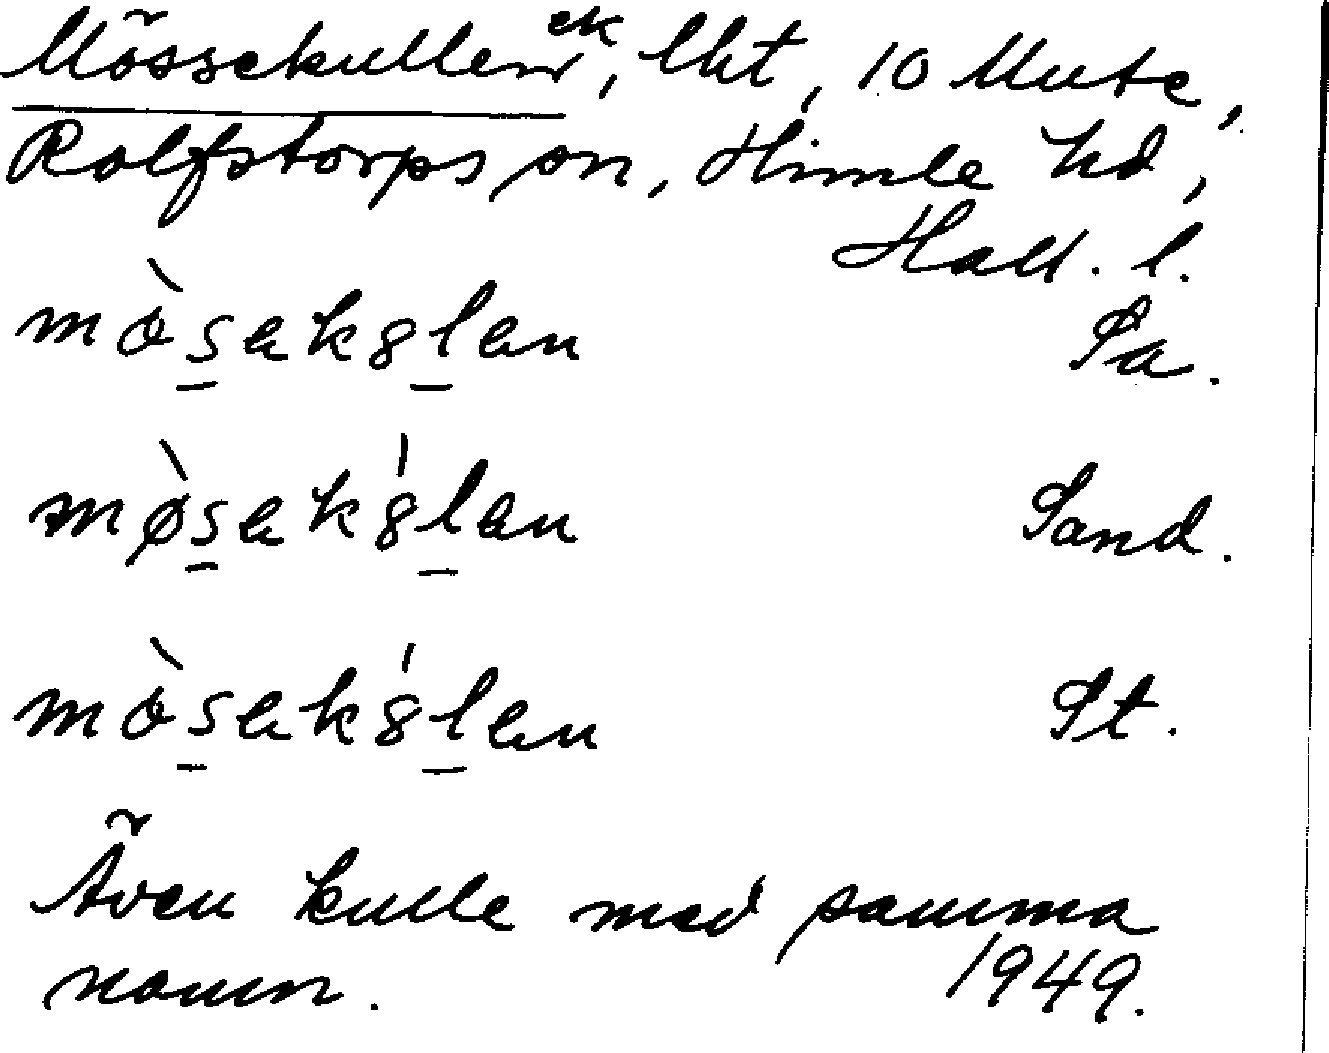 Mössekullen ek, lht, 10 Mute,
Rolfstorps sn, Himle hd,
Hall. l.
mòsekȣlen Sa.
mø̀sekȣ́len Sand.
mòsekȣ́len St.
Även kulle med samma
namn. 1949.